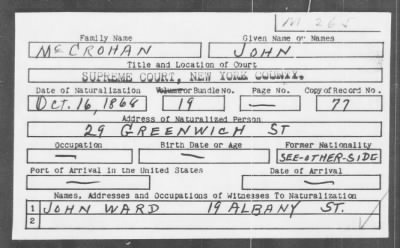 M 265
Family Name Given Name or Names
McCROHAN JOHN
Title and Location of Court
SUPREME COURT, NEW YORK COUNTY.
Date of Naturalization Volume or Bundle No. Page No. Copy of Record No.
Oct. 16, 1868 19 — 77
Address of Naturalized Person
29 GREENWICH ST
Occupation Birth Date or Age Former Nationality
— — SEE-OTHER-SIDE
Port of Arrival in the United States Date of Arrival
— —
Names, Addresses and Occupations of Witnesses To Naturalization
1 JOHN WARD 19 ALBANY ST.
2